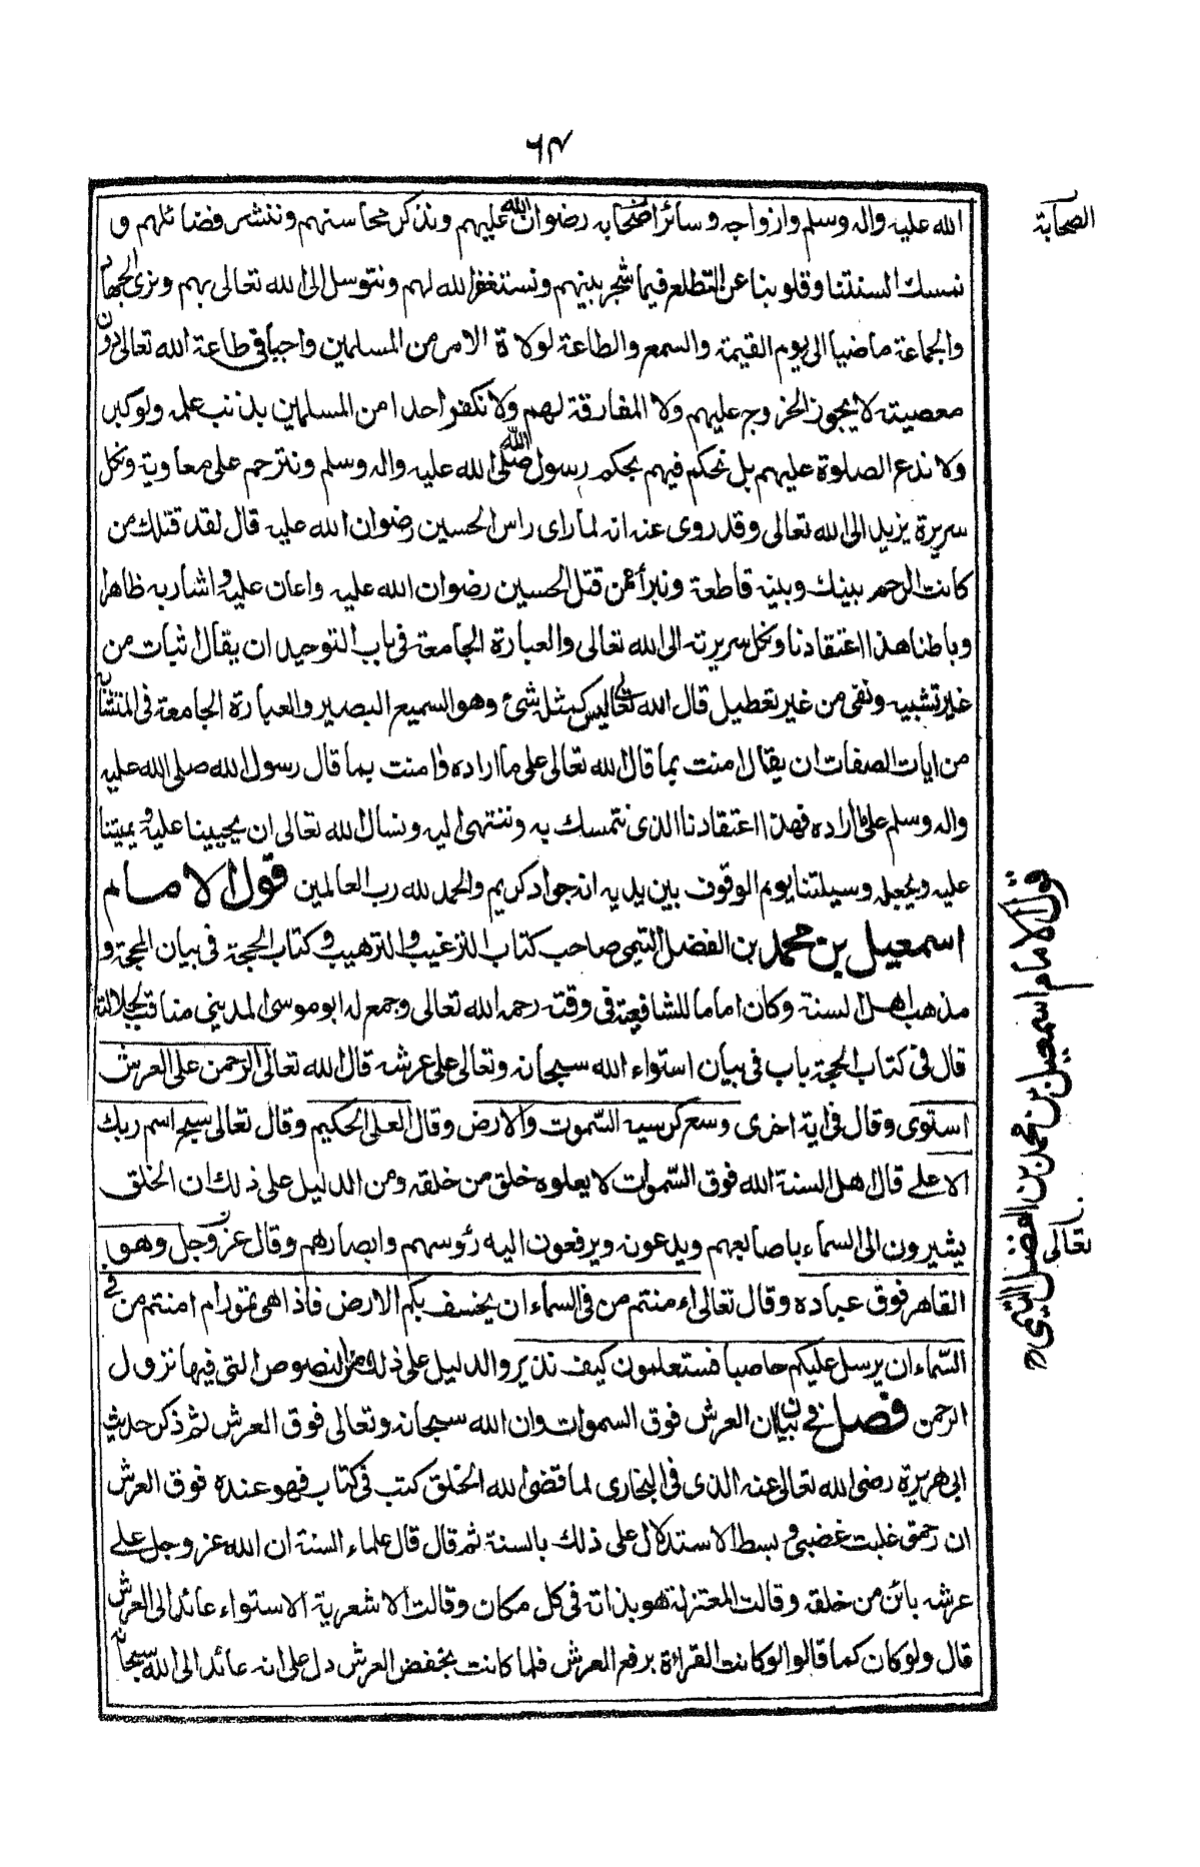 ٦٧
الله عليه واله وسلم وازواجه وسائر اصحابه رضوان الله عليهم ونذكر محاسنهم وننشر فضائلهم و
نمسك السنتنا وقلوبنا عن التطلع فيما شجر بينهم ونستغفر الله لهم ونتوسل الى الله تعالى بهم ونرى الجهاد
والجماعة ماضيا الى يوم القيمة والسمع والطاعة لولاة الامر من المسلمين واجبا فى طاعة الله تعالى دون
معصيته لا يجوز الخروج عليهم ولا المفارقة لهم ولا نكفر احدا من المسلمين بذنب عمله ولو كبر
ولا ندع الصلوة عليهم بل نحكم فيهم بحكم رسول الله صلى الله عليه واله وسلم ونترحم على معاوية ونكل
سريرة يزيد الى الله تعالى وقد روى عنه انه لما راى راس الحسين رضوان الله عليه قال لقد قتلك من
كانت الرحم بينك وبينه قاطعة ونبرأ ممن قتل الحسين رضوان الله عليه واعان عليه واشار به ظاهرا
وباطنا هذا اعتقادنا ونكل سريرته الى الله تعالى والعبارة الجامعة فى باب التوحيد ان يقال اثبات من
غير تشبيه ونفى من غير تعطيل قال الله تعالى ليس كمثله شئ وهو السميع البصير والعبارة الجامعة فى المتشابه
من ايات الصفات ان يقال امنت بما قال الله تعالى على ما اراده وامنت بما قال رسول الله صلى الله عليه
واله وسلم على ما اراده فهذا اعتقادنا الذى نتمسك به وننتهى اليه ونسال الله تعالى ان يحيينا عليه ويميتنا
عليه ويجعله وسيلتنا يوم الوقوف بين يديه انه جواد كريم والحمد لله رب العالمين قول الامام
اسمعيل بن محمد بن الفضل التيمى صاحب كتاب الترغيب والترهيب وكتاب الحجة فى بيان المحجة و
مذهب اهل السنة وكان اماما للشافعية فى وقته رحمه الله تعالى وجمع له ابو موسى المدينى مناقب لجلالته
قال فى كتاب الحجة باب فى بيان استواء الله سبحانه وتعالى على عرشه قال الله تعالى الرحمن على العرش
استوى وقال فى اية اخرى وسع كرسيه السموت والارض وقال العلى الحكيم وقال تعالى سبح اسم ربك
الاعلے قال اهل السنة الله فوق السموات لا يعلوه خلق من خلقه ومن الدليل على ذلك ان الخلق
يشيرون الى السماء باصابعهم ويدعونه ويرفعون اليه رؤسهم وابصارهم وقال عز وجل وهو
القاهر فوق عباده وقال تعالى اء منتم من فى السماء ان يخسف بكم الارض فاذا هى تمور ام امنتم من فے
السماء ان يرسل عليكم حاصبا فستعلمون كيف نذير والدليل على ذلك من النصوص التى فيها نزول
الرحمن فصل فے بيان ان العرش فوق السموات وان الله سبحانه وتعالى فوق العرش ثم ذكر حديث
ابى هريرة رضى الله تعالى عنه الذى فى البخارى لما قضى الله الخلق كتب فى كتاب فهو عنده فوق العرش
ان رحمتى غلبت غضبى و بسط الاستدلال على ذلك بالسنة ثم قال قال علماء السنة ان الله عز وجل علے
عرشه بائن من خلقه وقالت المعتزلة هو بذاته فى كل مكان وقالت الاشعرية الاستواء عائد الى العرش
قال ولو كان كما قالوا لو كانت القراءة برفع العرش فلما كانت بخفض العرش دل على انه عائد الى الله سبحانه
الصحابة
قول الامام اسمعيل بن محمد بن الفضل التيمى رح
تعالى